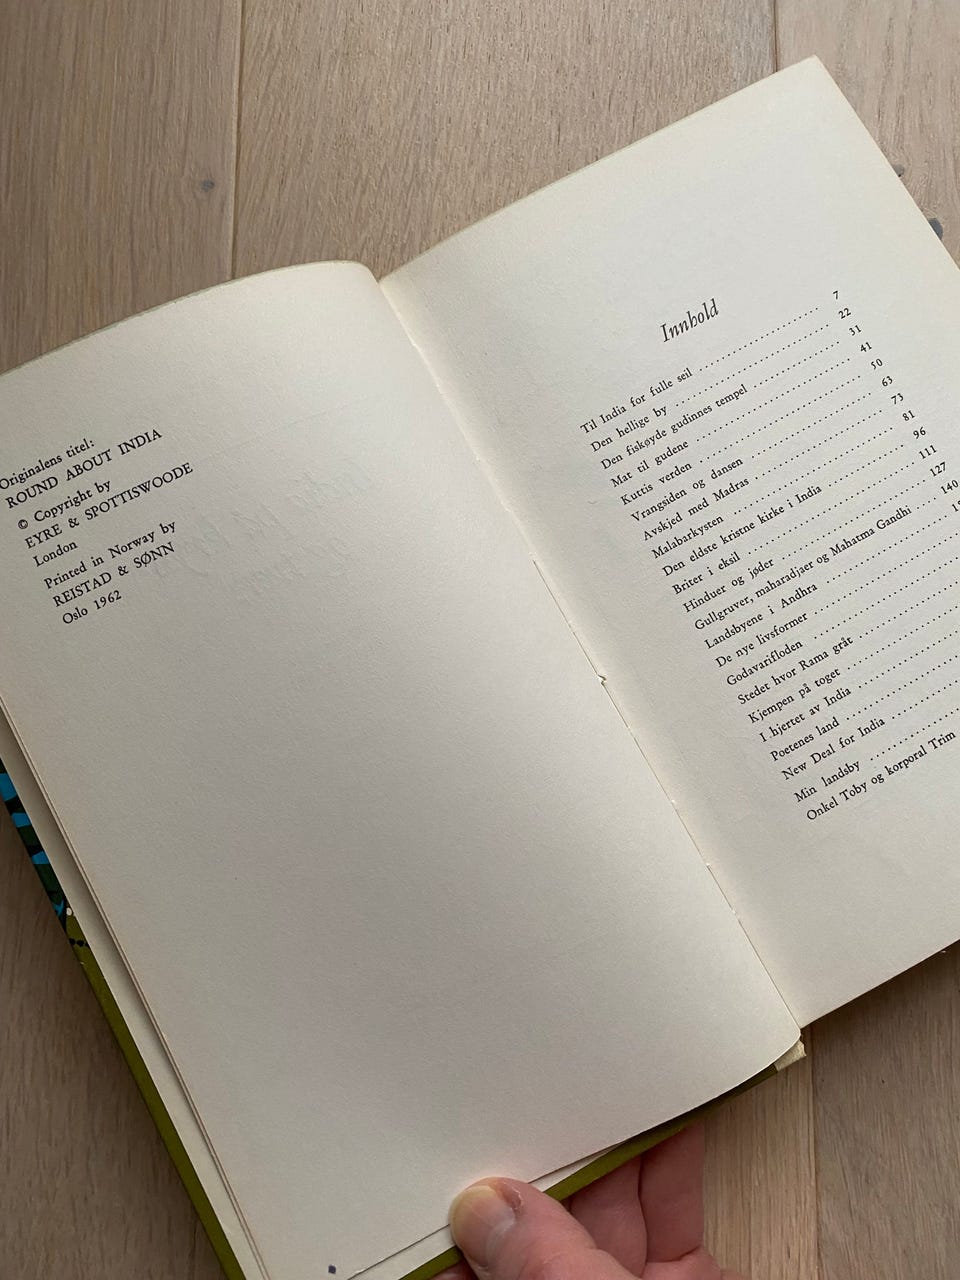 Originalens titel:
ROUND ABOUT INDIA
© Copyright by
EYRE & SPOTTISWOODE
London
Printed in Norway by
REISTAD & SØNN
Oslo 1962
Innhold
Til India for fulle seil 7
Den hellige by 22
Den fiskøyde gudinnes tempel 31
Mat til gudene 41
Kuttis verden 50
Vrangsiden og dansen 63
Avskjed med Madras 73
Malabarkysten 81
Den eldste kristne kirke i India 96
Briter i eksil 111
Hinduer og jøder 127
Gullgruver, maharadjaer og Mahatma Gandhi 140
Landsbyene i Andhra
De nye livsformer
Godavarifloden
Stedet hvor Rama gråt
Kjempen på toget
I hjertet av India
Poetenes land
New Deal for India
Min landsby
Onkel Toby og korporal Trim